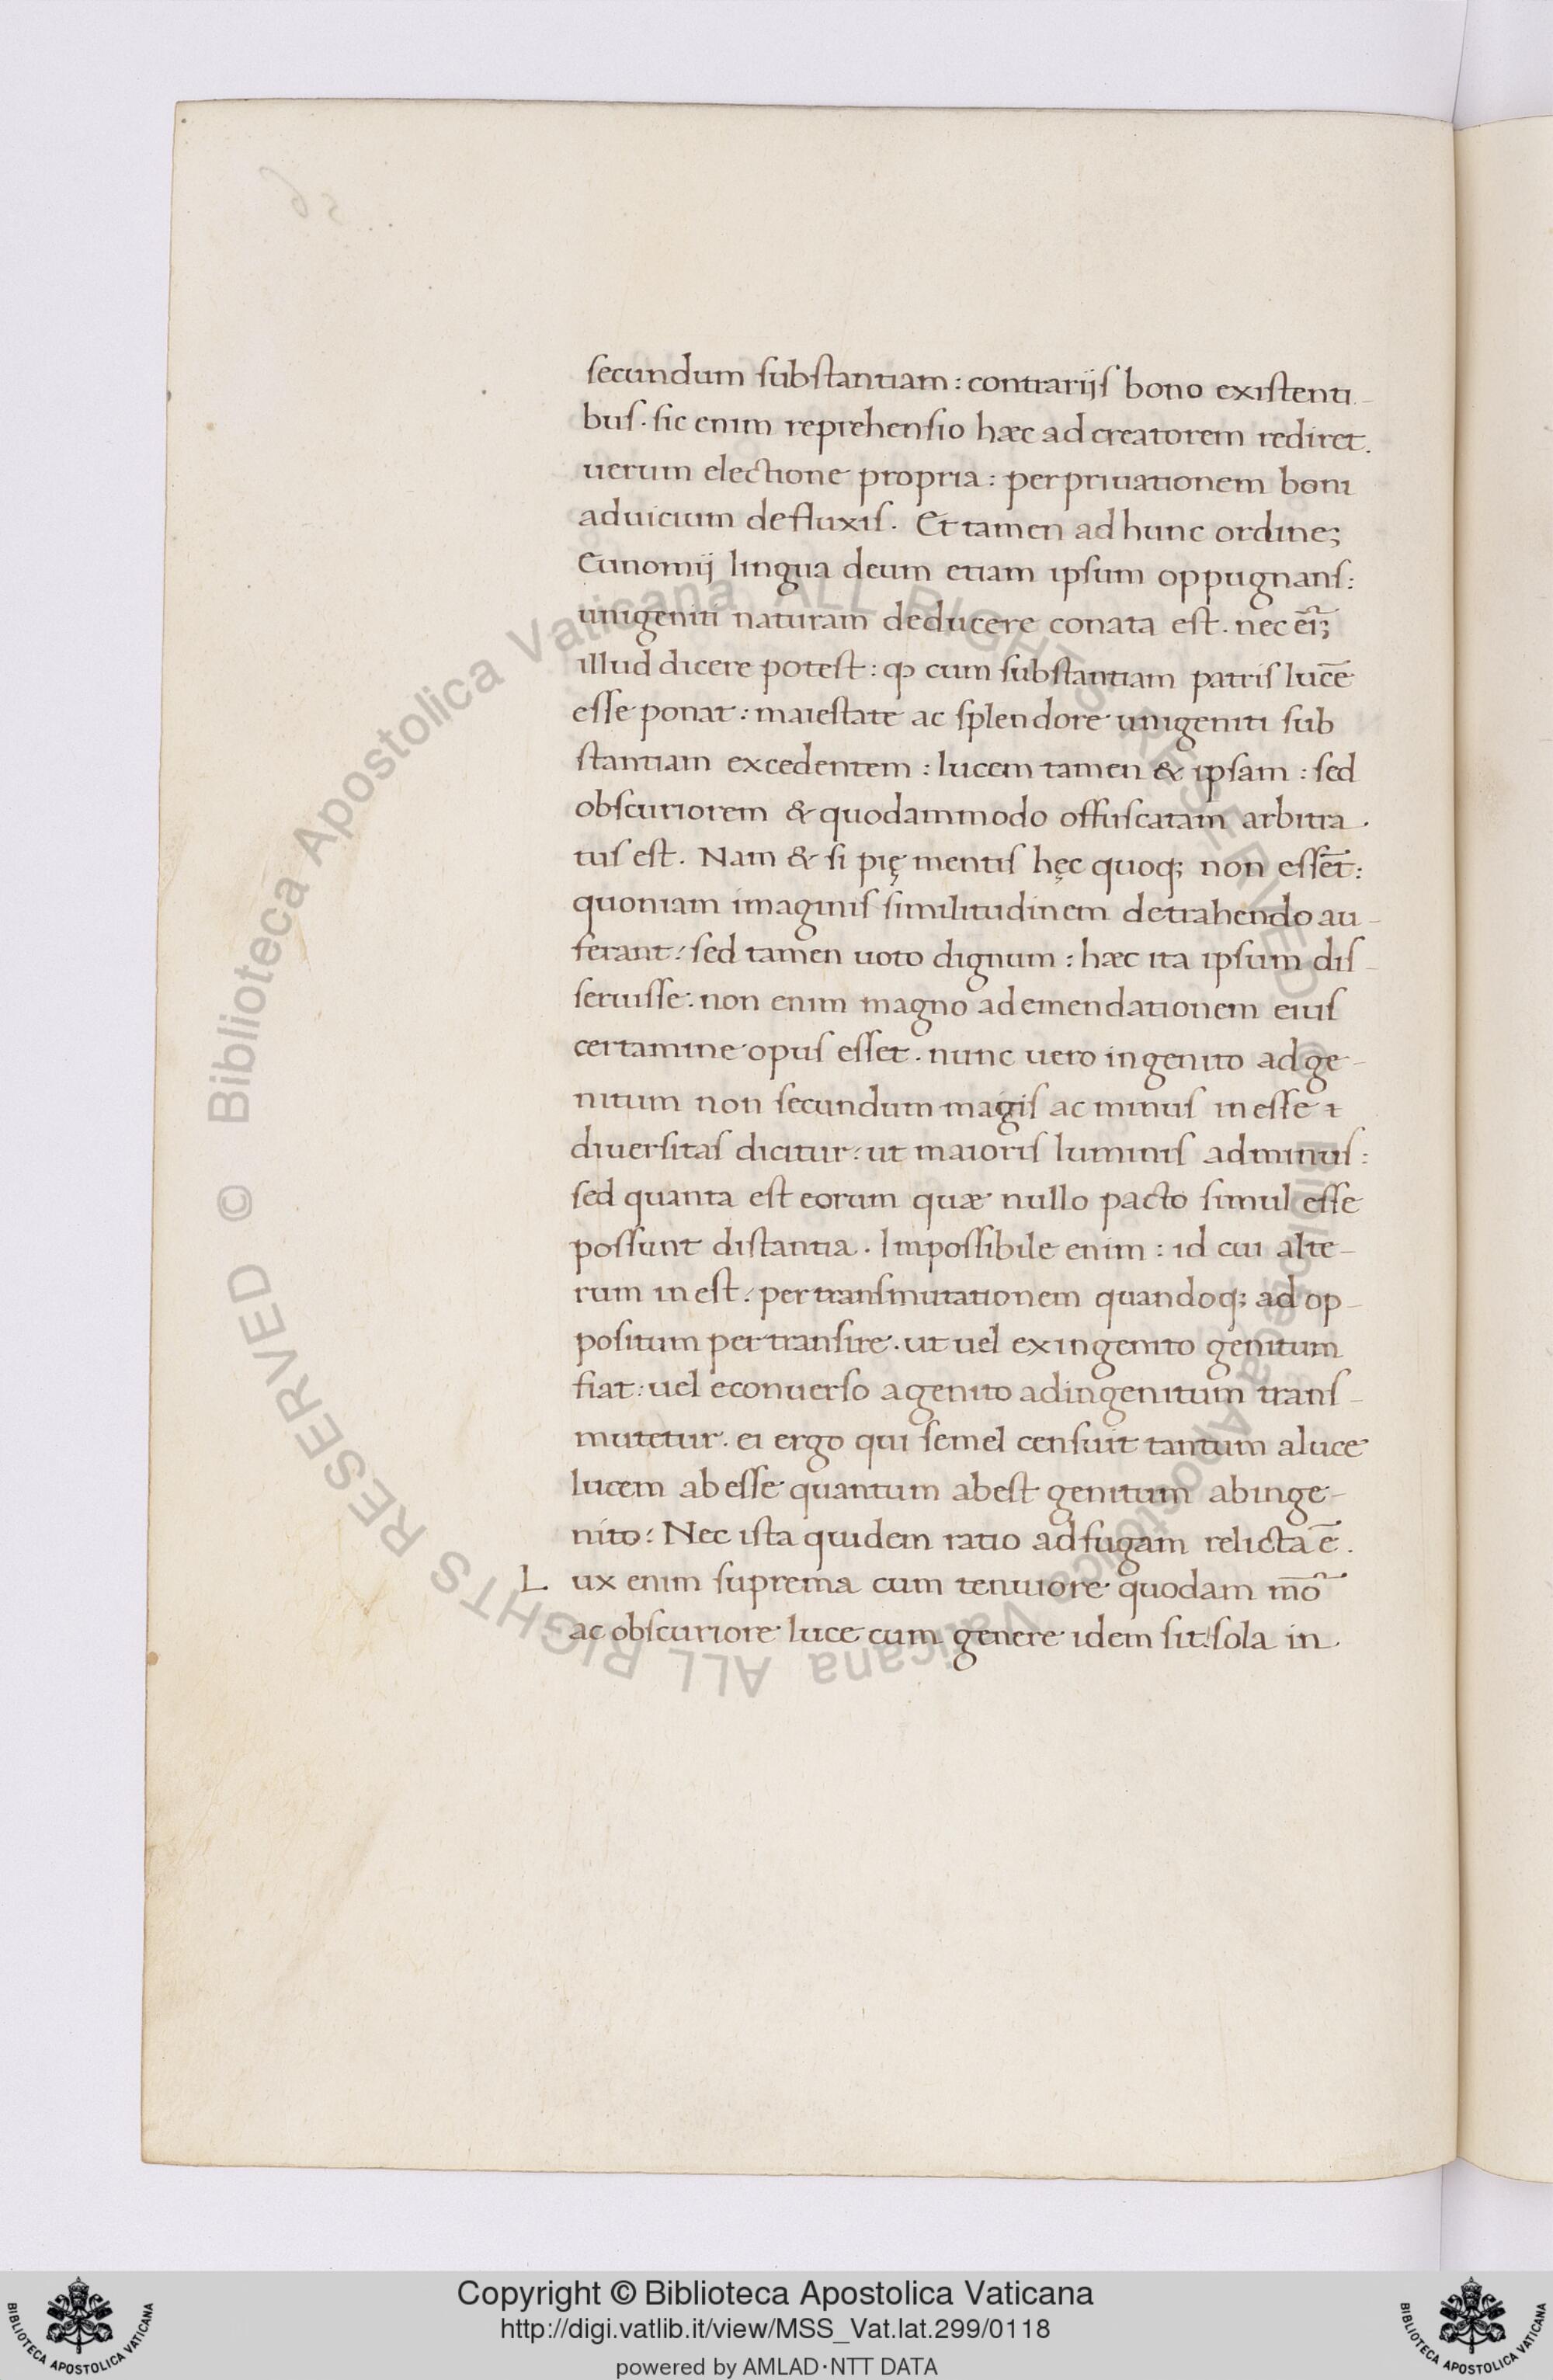 secundum substantiam: contrarijs bono existenti-
bus. sic enim reprehensio hæc ad creatorem rediret.
uerum electione propria: per priuationem boni
ad uicium defluxis. Et tamen ad hunc ordinē;
Eunomij lingua deum etiam ipsum oppugnans:
unigeniti naturam deducere conata est. nec eī;
illud dicere potest: ꝙ cum substantiam patris lucē
esse ponat: maiestate ac splendore unigeniti sub
stantiam excedentem: lucem tamen & ipsam: sed
obscuriorem & quodammodo offuscatam arbitra-
tus est. Nam & si pię mentis hęc quoq; non essēt:
quoniam imaginis similitudinem detrahendo au-
ferant: sed tamen uoto dignum: hæc ita ipsum dis-
seruisse. non enim magno ad emendationem eius
certamine opus esset. nunc uero ingenito ad ge-
nitum non secundum magis ac minus inesse
diuersitas dicitur: ut maioris luminis ad minus:
sed quanta est eorum quæ nullo pacto simul esse
possunt distantia. Impossibile enim: id cui alte-
rum inest: per transmutationem quandoq; ad op-
positum pertransire. ut uel ex ingenito genitum
fiat: uel econuerso a genito ad ingenitum trans-
mutetur. ei ergo qui semel censuit tantum a luce
lucem abesse quantum abest genitum ab inge-
nito: Nec ista quidem ratio ad fugam relicta ē.
Lux enim suprema cum tenuiore quodam mō
ac obscuriore luce cum genere idem sit: sola in
Copyright © Biblioteca Apostolica Vaticana
http://digi.vatlib.it/view/MSS_Vat.lat.299/0118
powered by AMLAD·NTT DATA
BIBLIOTECA APOSTOLICA VATICANA
BIBLIOTECA APOSTOLICA VATICANA
© Biblioteca Apostolica Vaticana ALL RIGHTS RESERVED
© Biblioteca Apostolica Vaticana ALL RIGHTS RESERVED